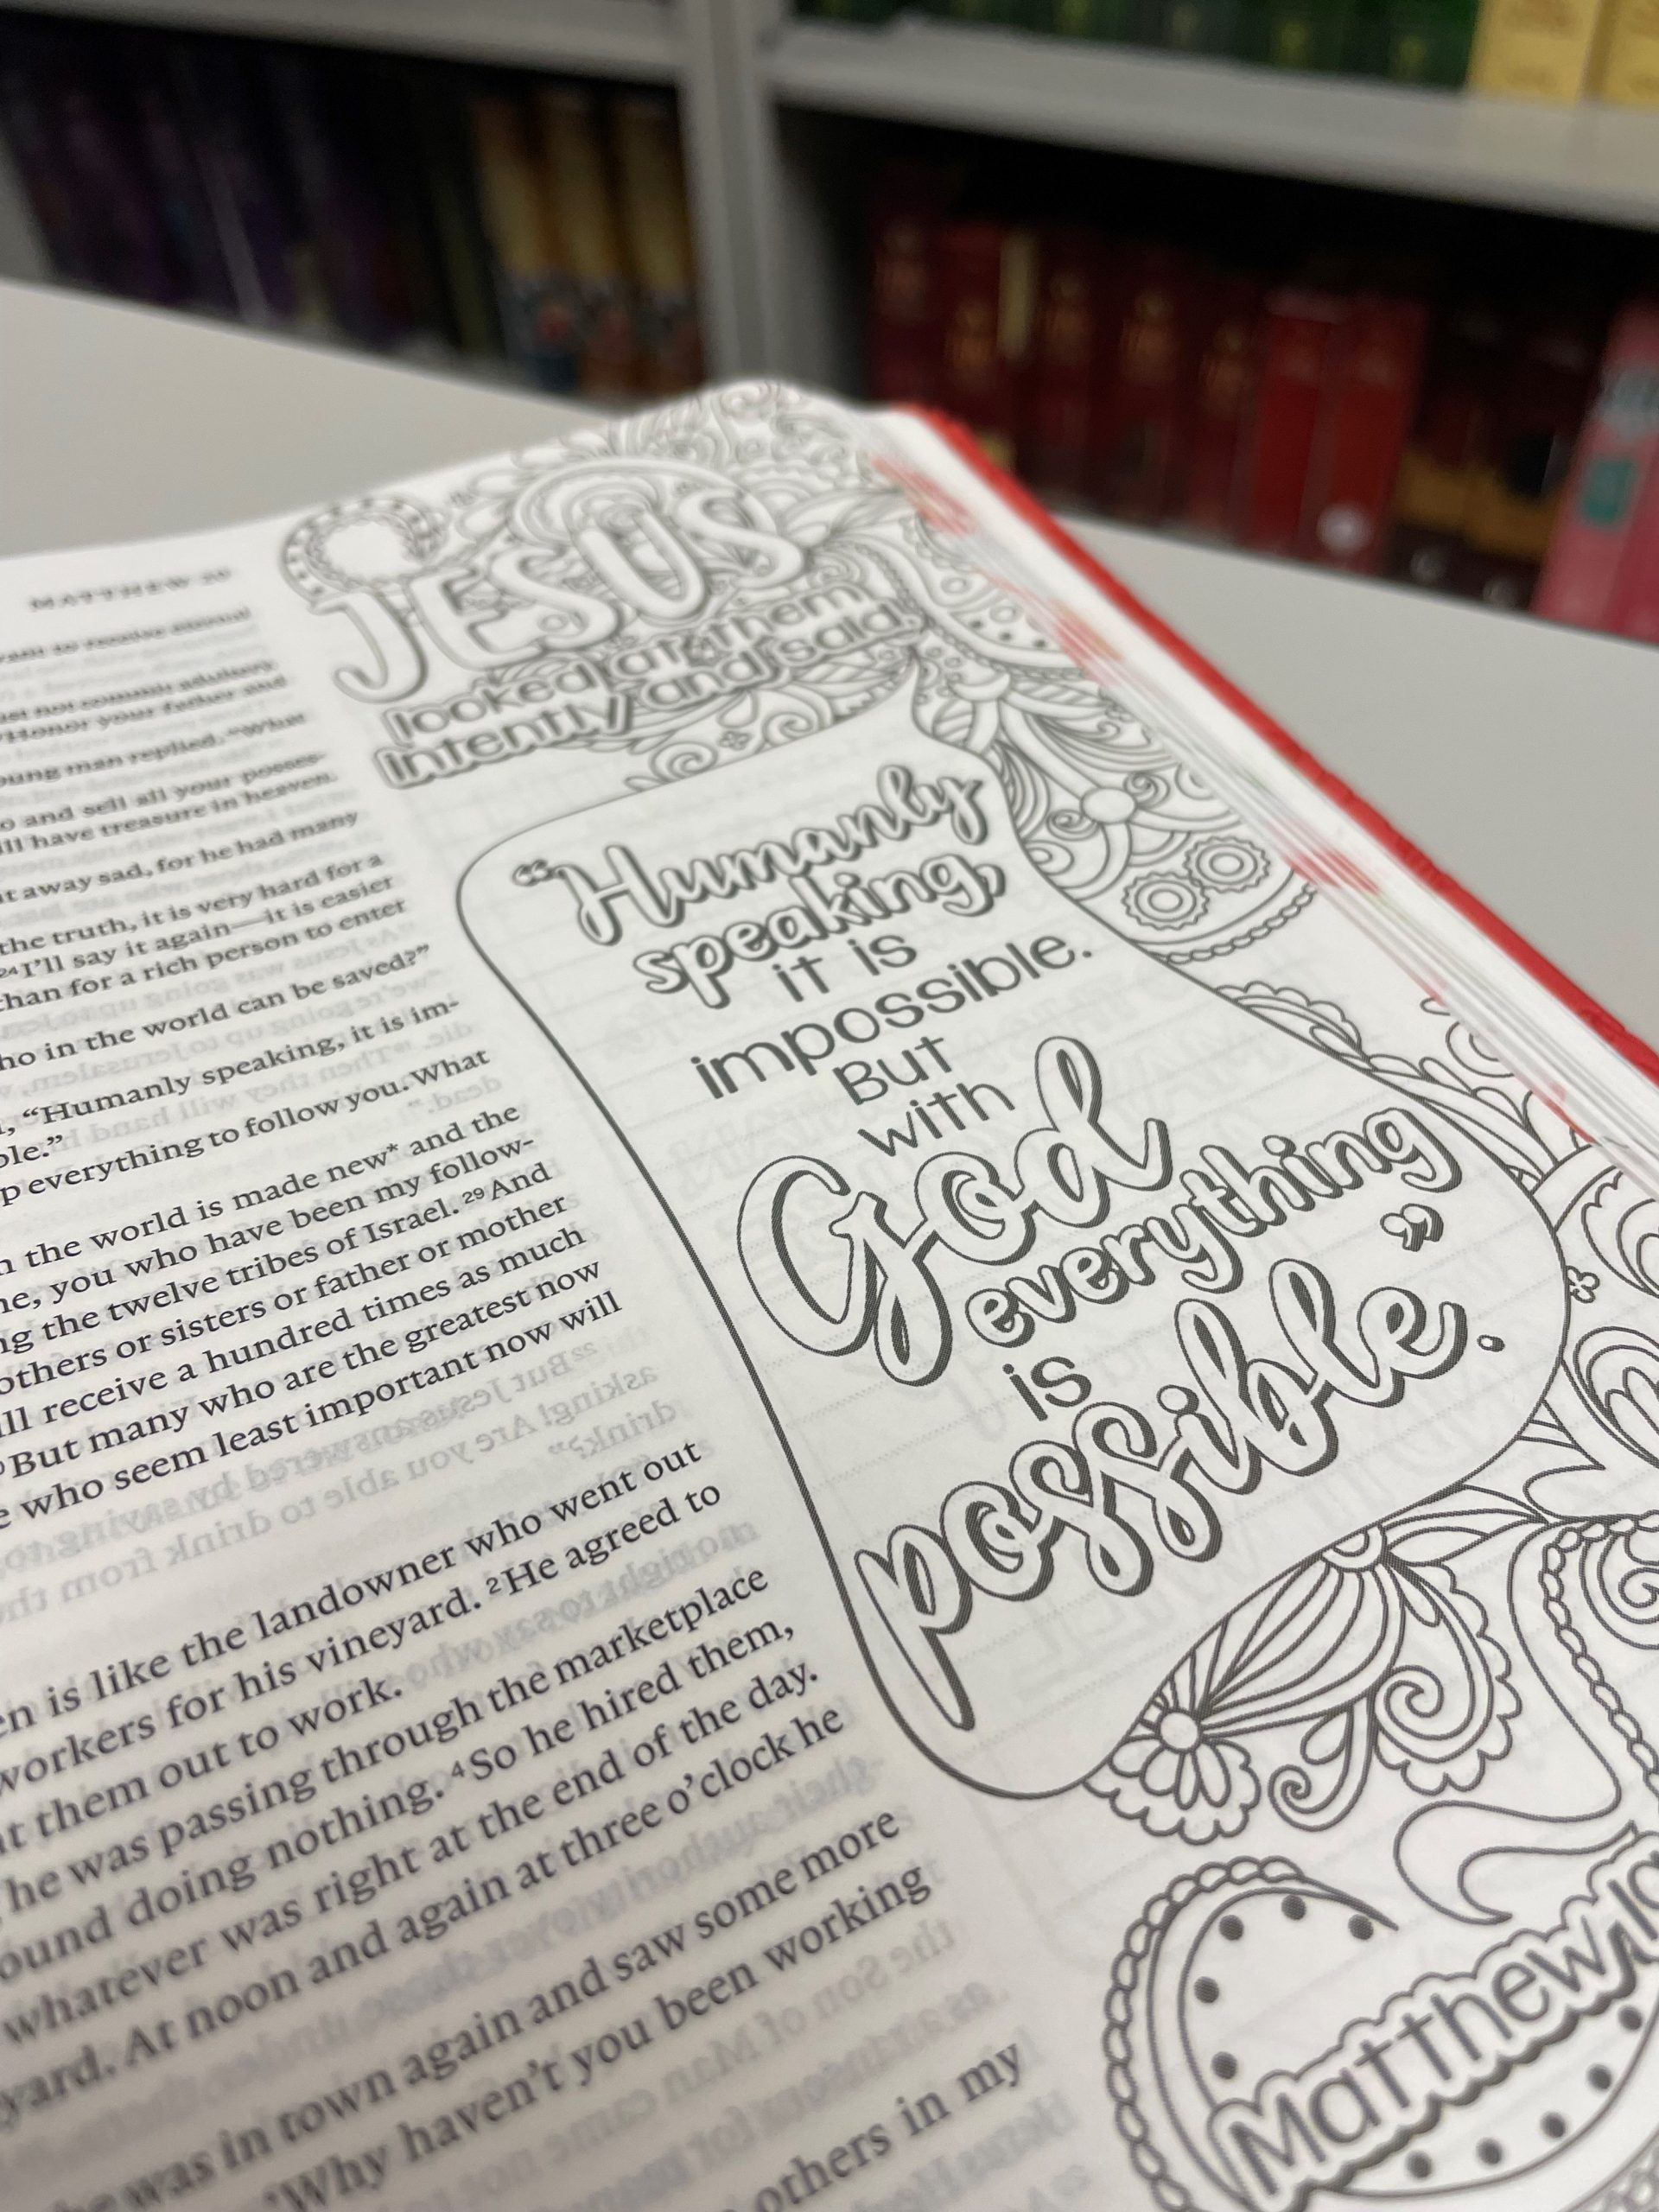 MATTHEW 20
ust not commit adultery.
Honor your father and
oung man replied. "What
o and sell all your posses-
ll have treasure in heaven.
t away sad, for he had many
the truth, it is very hard for a
24 I'll say it again—it is easier
than for a rich person to enter
ho in the world can be saved?"
, "Humanly speaking, it is im-
ble."
p everything to follow you. What
n the world is made new* and the
ne, you who have been my follow-
ng the twelve tribes of Israel. 29 And
others or sisters or father or mother
ll receive a hundred times as much
But many who are the greatest now
e who seem least important now will
en is like the landowner who went out
workers for his vineyard. 2 He agreed to
nt them out to work.
he was passing through the marketplace
ound doing nothing. 4 So he hired them,
whatever was right at the end of the day.
yard. At noon and again at three o'clock he
he was in town again and saw some more
'Why haven't you been working
others in my
JESUS
looked at them
intently and said,
"Humanly
speaking,
it is
impossible.
But
with
God
everything
is
possible."
Matthew 19